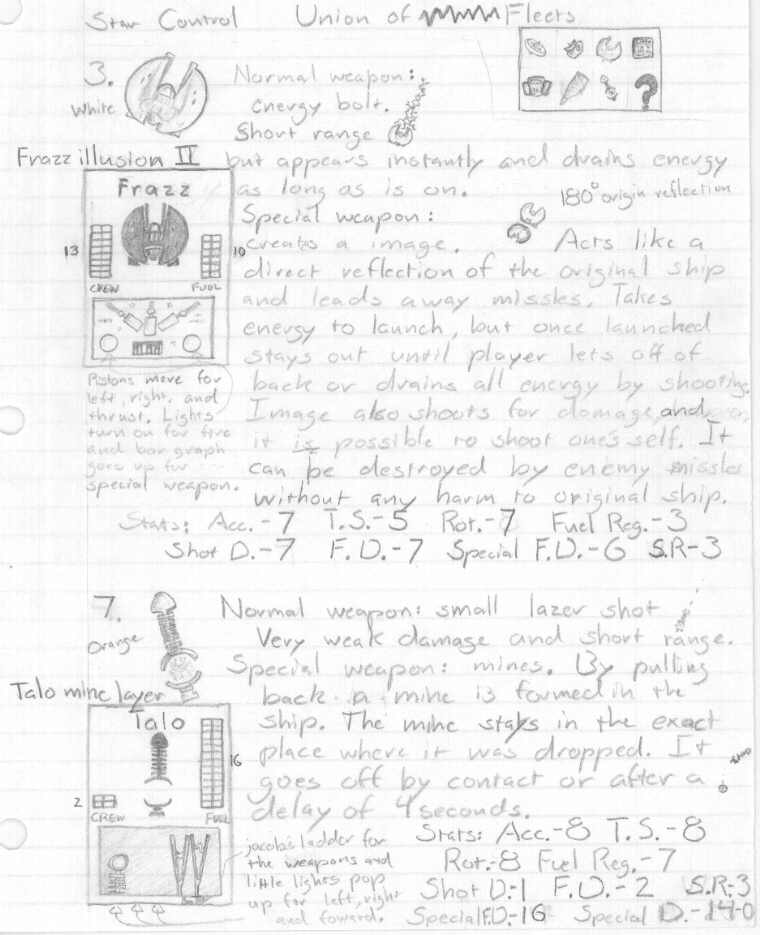 Star Control Union of Fleets
3. Normal weapon:
White energy bolt.
Short range
Frazz illusion II but appears instantly and drains energy
Frazz as long as is on.
180° origin reflection
Special weapon:
creates a image. Acts like a
13 10 direct reflection of the original ship
CREW FUEL and leads away missles. Takes
energy to launch, but once launched
stays out until player lets off of
Pistons move for back or drains all energy by shooting.
left, right, and Image also shoots for damage, and
thrust. Lights
turn on for fire it is possible to shoot one's self. It
and bar graph
goes up for can be destroyed by enemy missles
special weapon. without any harm to original ship.
Stats: Acc.-7 T.S.-5 Rot.-7 Fuel Reg.-3
Shot D.-7 F.D.-7 Special F.D.-6 S.R-3
7. Normal weapon: small lazer shot
Orange Very weak damage and short range.
Special weapon: mines. By pulling
Talo mine layer back a mine is formed in the
Talo ship. The mine stays in the exact
16 place where it was dropped. It
2 goes off by contact or after a
CREW FUEL delay of 4 seconds.
jacobs ladder for Stats: Acc.-8 T.S.-8
the weapons and Rot.-8 Fuel Reg.-7
little lights pop Shot D.-1 F.D.-2 S.R-3
up for left, right
and foward. Special F.D.-16 Special D.-14-0